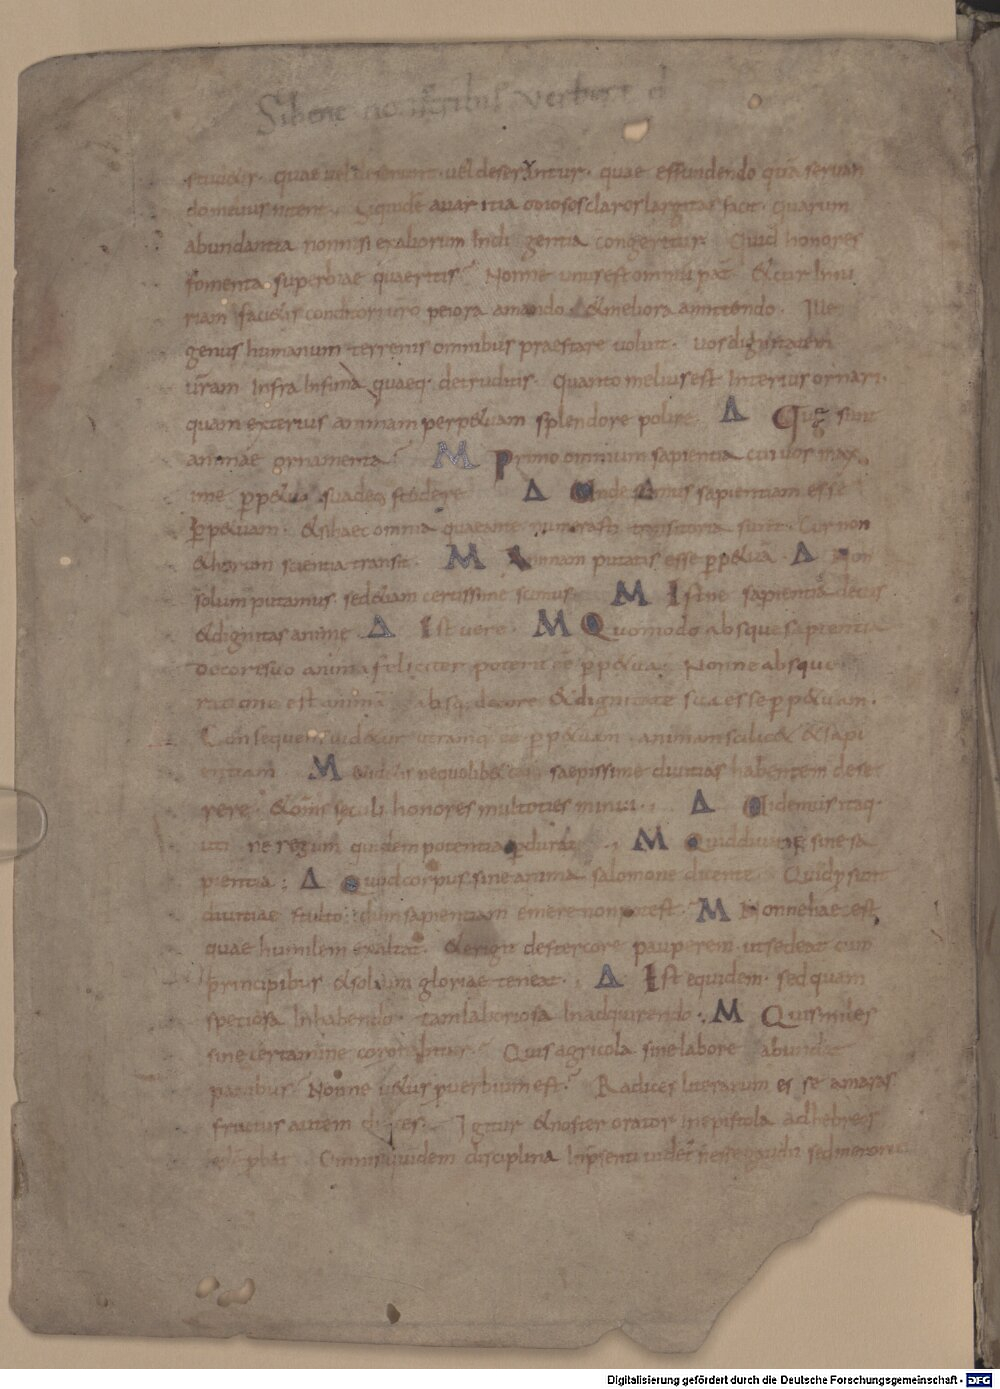 Sibene
studetis. quae vel deserunt. vel deseruntur. quae effundendo quā servan
do melius nitent. Siquidē avaritia odiosos claros largitas facit. quarum
abundantia non nisi ex aliorum Indigentia congeritur. Quid honores
fomenta superbiae quaeritis? Nonne unus est omniū pat̄. & cur Iniu
riam facitis conditori vr̄o peiora amando. & meliora amittendo. Ille
genus humanum terrenis omnibus praestare voluit. vos dignitatem
vr̄am Infra Infima quaeq. detruditis. Quanto melius est Interius ornari.
quam exterius animam perp&uam splendore polire. Δ Quę sunt
animae ornamenta? M Primo omnium sapientia cui vos max
ime suadeo studere Δ Unde scimus sapientiam esse
p̱p&uam. & si haec omnia quae ante numerasti transitoria sunt. Cur non
& horum scientia transit. M Animam putatis esse p̱p&uā. Δ Non
solum putamus. sed &iam certissime scimus. M Istne sapientia decus
& dignitas animę. Δ Ist vere. M Quomodo absque sapientia
decore suo anima feliciter poterit eē p̱p&ua. Nonne absque
ratione est anima absq. decore & dignitate sua esse p̱p&uam.
Consequens vid&ur utramq. eē p̱p&uam. animam scilic& & sapi
entiam. M saepissime divitias habentem dese
rere. & om̄s seculi honores multoties minui. Δ Quidem sic itaq.
uti ne regum quidem potentia p̱durat. M Quid divitię sine sa
pientia; Δ Quid corpus sine anima salomone dicente. Quid p̱sunt
divitiae stulto; dum sapientiam emere non potest. M Nonne haec est
quae humilem exaltat. & erigit de stercore pauperem. ut sedeat cum
principibus & solium gloriae teneat. Δ Ist equidem. sed quam
speciosa Inhabendo. tam laboriosa Inadquirendo. M Quis miles
sine certamine coronabitur? Quis agricola sine labore abundat
panibus? Nonne v&us p̱verbium est? Radices literarum es se amaras
fructus autem dulces. Igitur & noster orator Inepistola adhebreos
Omnis quidem disciplina Inp̄senti